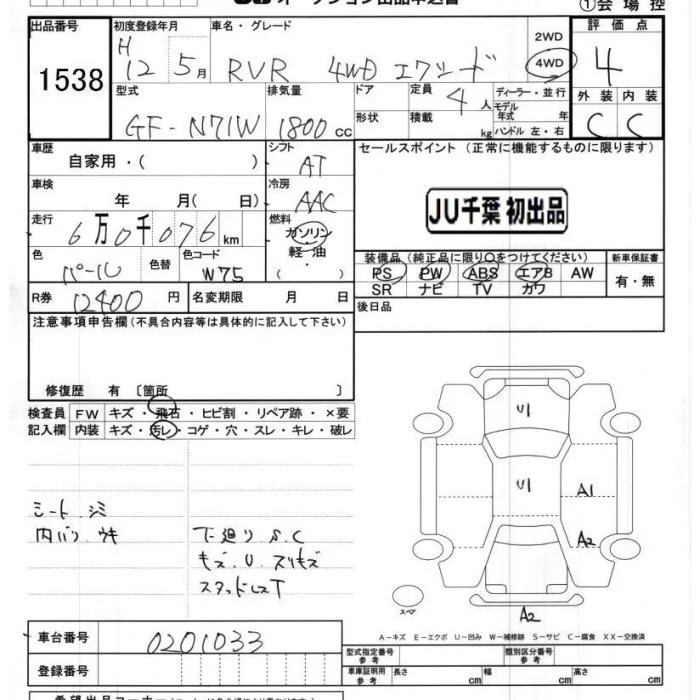 ①会場控
出品番号 初度登録年月 車名・グレード 2WD 評価点
1538 H 12 5月 RVR 4WD エクシード 4WD 4
型式 排気量 ドア 定員 4人 ディーラー・並行 外装 内装
GF-N71W 1800cc 形状 積載 kg モデル年式 年 ハンドル 左・右 C C
車歴 自家用・( ) シフト AT セールスポイント (正常に機能するものに限ります)
車検 年 月( 日) 冷房 AAC
JU千葉 初出品
走行 6万0千076km 燃料 ガソリン
軽油・( )
色 パール 色替 色コード W75
装備品(純正品に限り○をつけてください) 新車保証書
PS PW ABS エアB AW 有・無
SR ナビ TV カワ
R券 12400円 名変期限 月 日 後日品
注意事項申告欄(不具合内容等は具体的に記入して下さい)
修復歴 有 〔箇所 〕
検査員 FW キズ・飛石・ヒビ割・リペア跡・×要
記入欄 内装 キズ・汚レ・コゲ・穴・スレ・キレ・破レ
U1
U1
A1
A2
シート シミ
内バリ ウキ
下廻り S.C
キズ.U.スリキズ
スタッドレスT
スペア
A2
A-キズ E-エクボ U-凹み W-補修跡 S-サビ C-腐食 XX-交換済
車台番号 0201033
型式指定番号 参考 類別区分番号 参考
登録番号 車庫証明用 参考 長さ cm 幅 cm 高さ cm